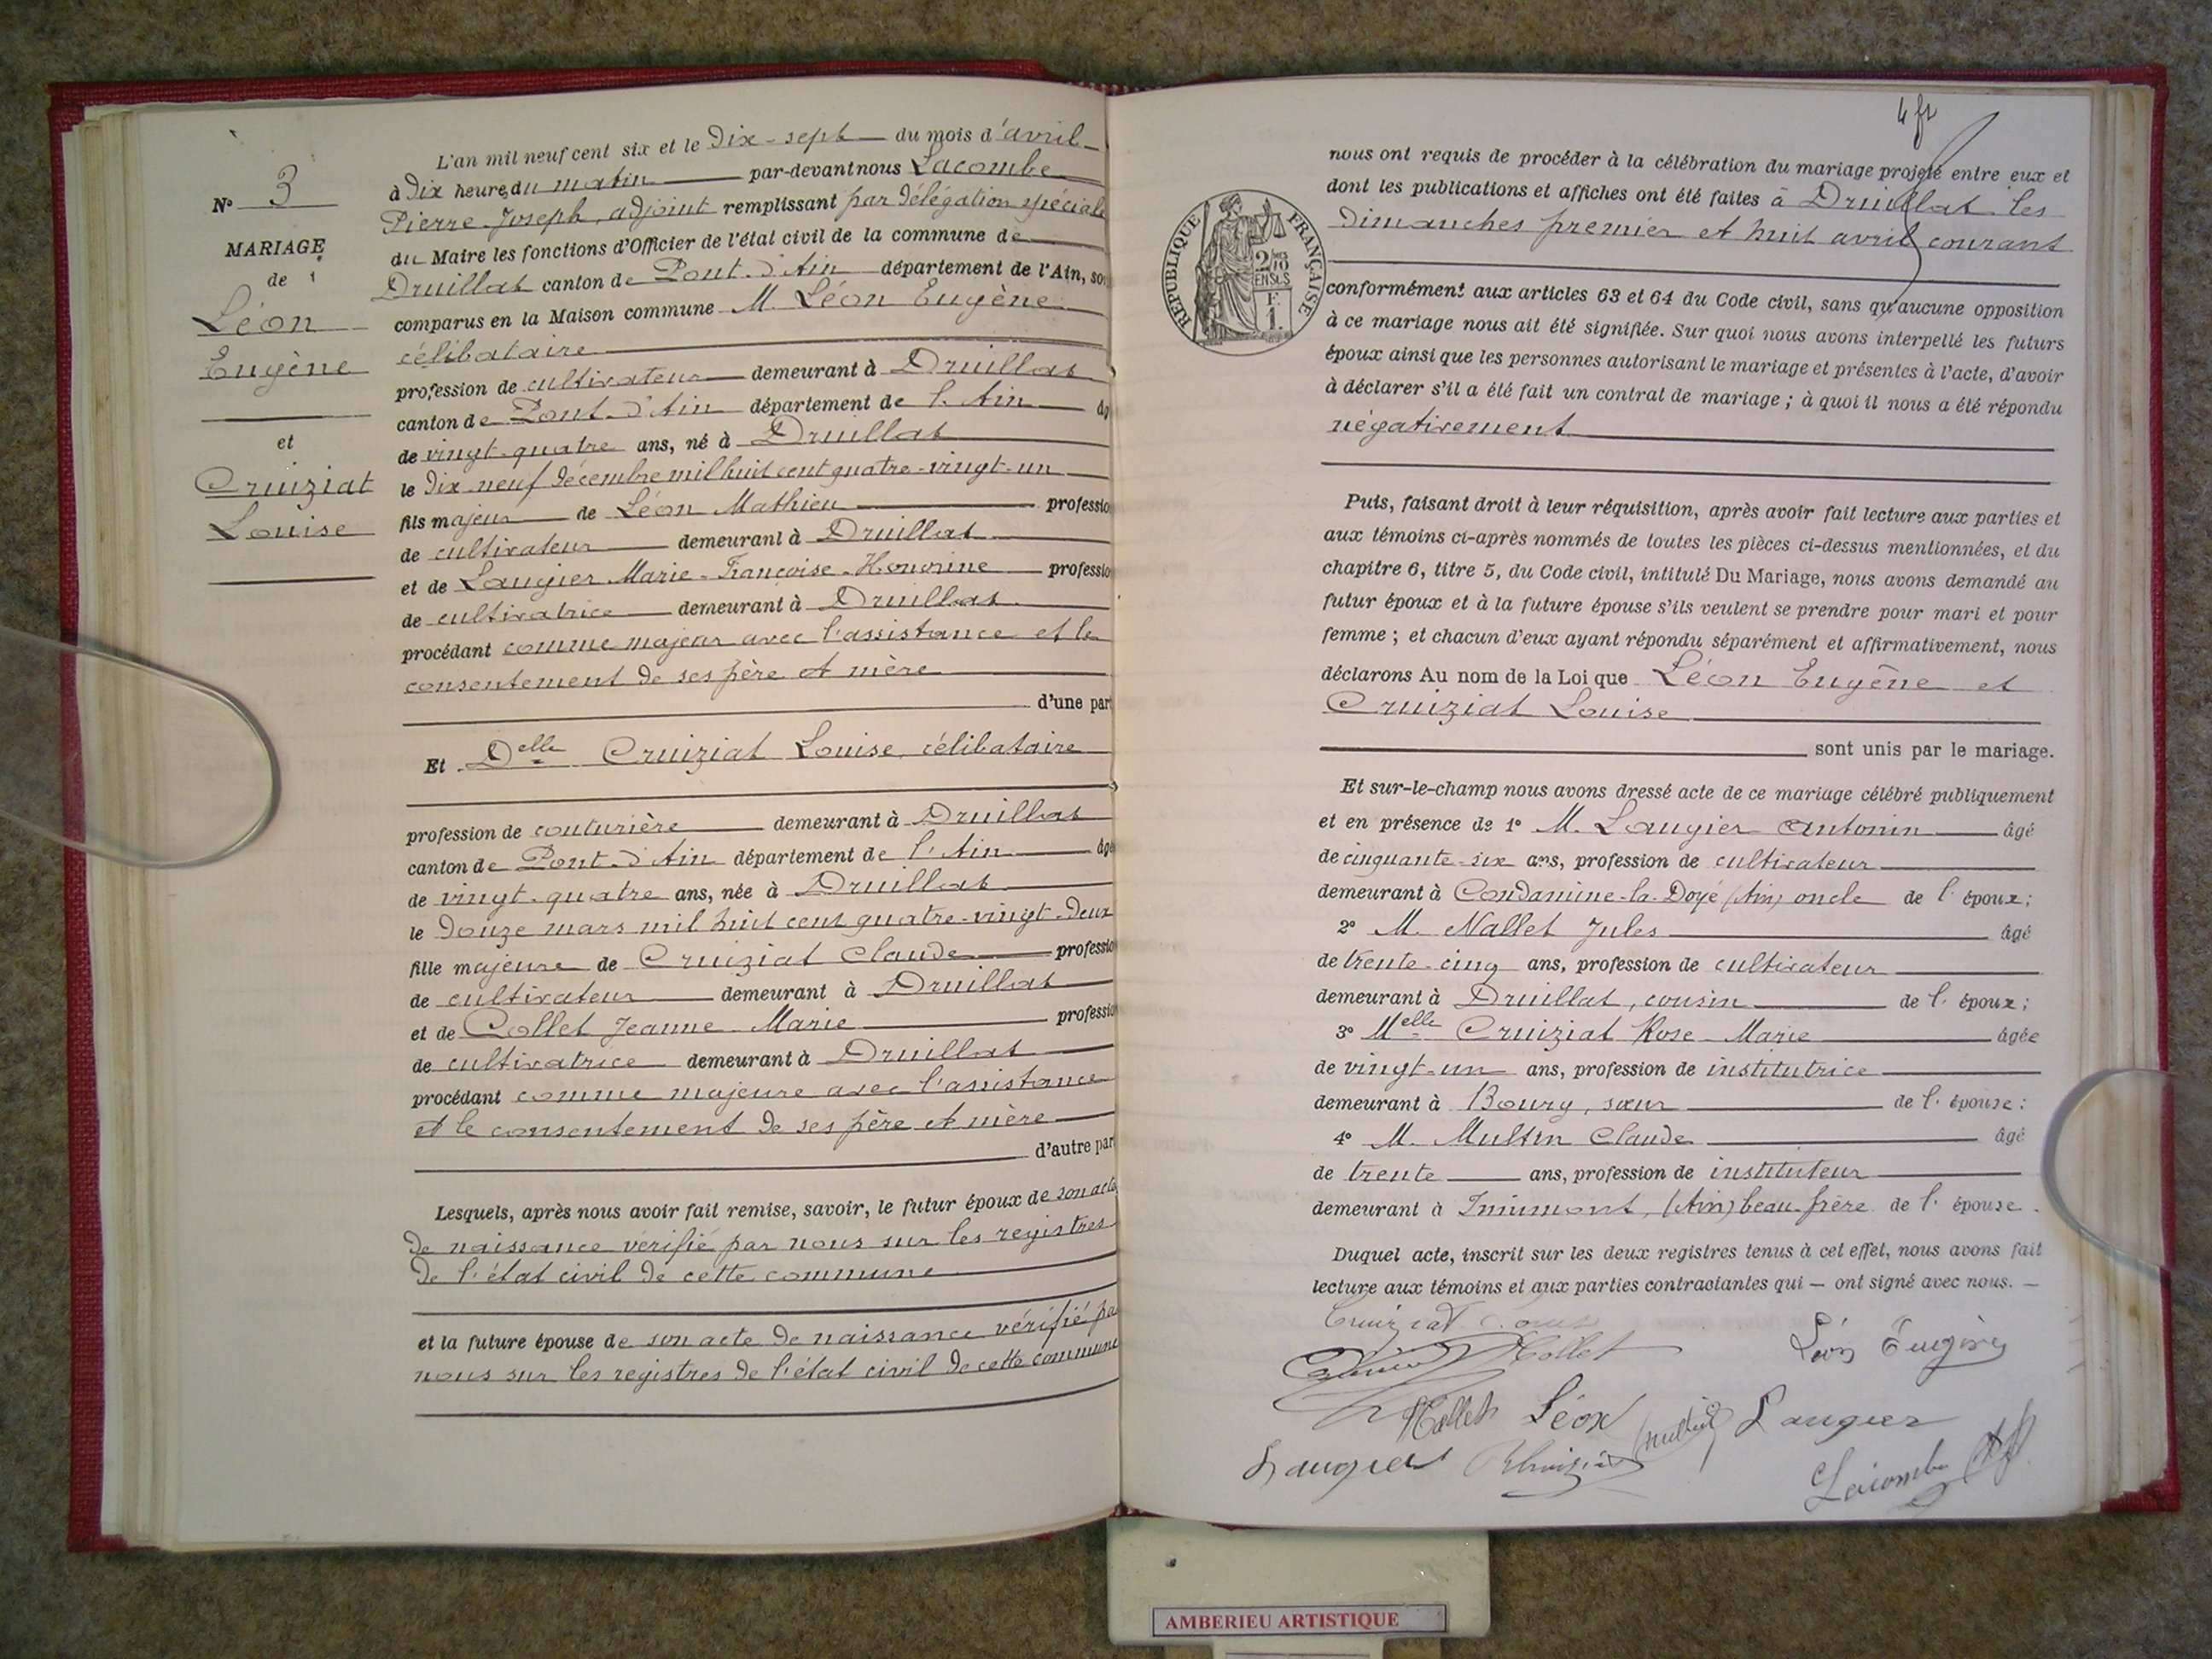 N° 3
MARIAGE
de
Léon
Eugène
et
Cruiziat
Louise
L'an mil neuf cent six et le Dix-sept du mois d'avril
à Dix heures du matin par-devant nous Lacombe
Pierre Joseph, adjoint remplissant par délégation spéciale
du Maire les fonctions d'Officier de l'état civil de la commune de
Druillat canton de Pont-d'Ain département de l'Ain, so
comparus en la Maison commune M. Léon Eugène
célibataire
profession de cultivateur demeurant à Druillat
canton de Pont-d'Ain département de l'Ain âg
de vingt-quatre ans, né à Druillat
le Dix-neuf décembre mil huit cent quatre-vingt-un
fils majeur de Léon Mathieu professio
de cultivateur demeurant à Druillat
et de Laugier Marie-Françoise-Honorine professio
de cultivatrice demeurant à Druillat
procédant comme majeur avec l'assistance et le
consentement de ses père et mère
d'une par
Et Delle Cruiziat Louise, célibataire
profession de couturière demeurant à Druillat
canton de Pont-d'Ain département de l'Ain âgé
de vingt-quatre ans, née à Druillat
le Douze mars mil huit cent quatre-vingt-deux
fille majeure de Cruiziat Claude professio
de cultivateur demeurant à Druillat
et de Collet Jeanne-Marie professio
de cultivatrice demeurant à Druillat
procédant comme majeure avec l'assistance
et le consentement de ses père et mère
d'autre par
Lesquels, après nous avoir fait remise, savoir, le futur époux de son acte
de naissance vérifié par nous sur les registres
de l'état civil de cette commune
et la future épouse de son acte de naissance vérifié pa
nous sur les registres de l'état civil de cette commune
4 ft
RÉPUBLIQUE FRANÇAISE
2/10 EN SUS
F.
1.
nous ont requis de procéder à la célébration du mariage projeté entre eux et
dont les publications et affiches ont été faites à Druillat les
Dimanches premier et huit avril courant
conformément aux articles 63 et 64 du Code civil, sans qu'aucune opposition
à ce mariage nous ait été signifiée. Sur quoi nous avons interpellé les futurs
époux ainsi que les personnes autorisant le mariage et présentes à l'acte, d'avoir
à déclarer s'il a été fait un contrat de mariage ; à quoi il nous a été répondu
négativement
Puis, faisant droit à leur réquisition, après avoir fait lecture aux parties et
aux témoins ci-après nommés de toutes les pièces ci-dessus mentionnées, et du
chapitre 6, titre 5, du Code civil, intitulé Du Mariage, nous avons demandé au
futur époux et à la future épouse s'ils veulent se prendre pour mari et pour
femme ; et chacun d'eux ayant répondu séparément et affirmativement, nous
déclarons Au nom de la Loi que Léon Eugène et
Cruiziat Louise
sont unis par le mariage.
Et sur-le-champ nous avons dressé acte de ce mariage célébré publiquement
et en présence de 1° M. Laugier Antonin âgé
de cinquante-six ans, profession de cultivateur
demeurant à Condamine-la-Doye (Ain) oncle de l'époux;
2° M. Nallet Jules âgé
de trente-cinq ans, profession de cultivateur
demeurant à Druillat, cousin de l'époux;
3° Melle Cruiziat Rose-Marie âgée
de vingt-un ans, profession de institutrice
demeurant à Bourg, sœur de l'épouse;
4° M. Multin Claude âgé
de trente ans, profession de instituteur
demeurant à Innimont, (Ain) beau-frère de l'épouse.
Duquel acte, inscrit sur les deux registres tenus à cet effet, nous avons fait
lecture aux témoins et aux parties contractantes qui — ont signé avec nous. —
Cruiziat Louise
Collet
Léon Eugène
Nallet Léon Multin Laugier
Laugier R Cruiziat
Lacombe
AMBERIEU ARTISTIQUE